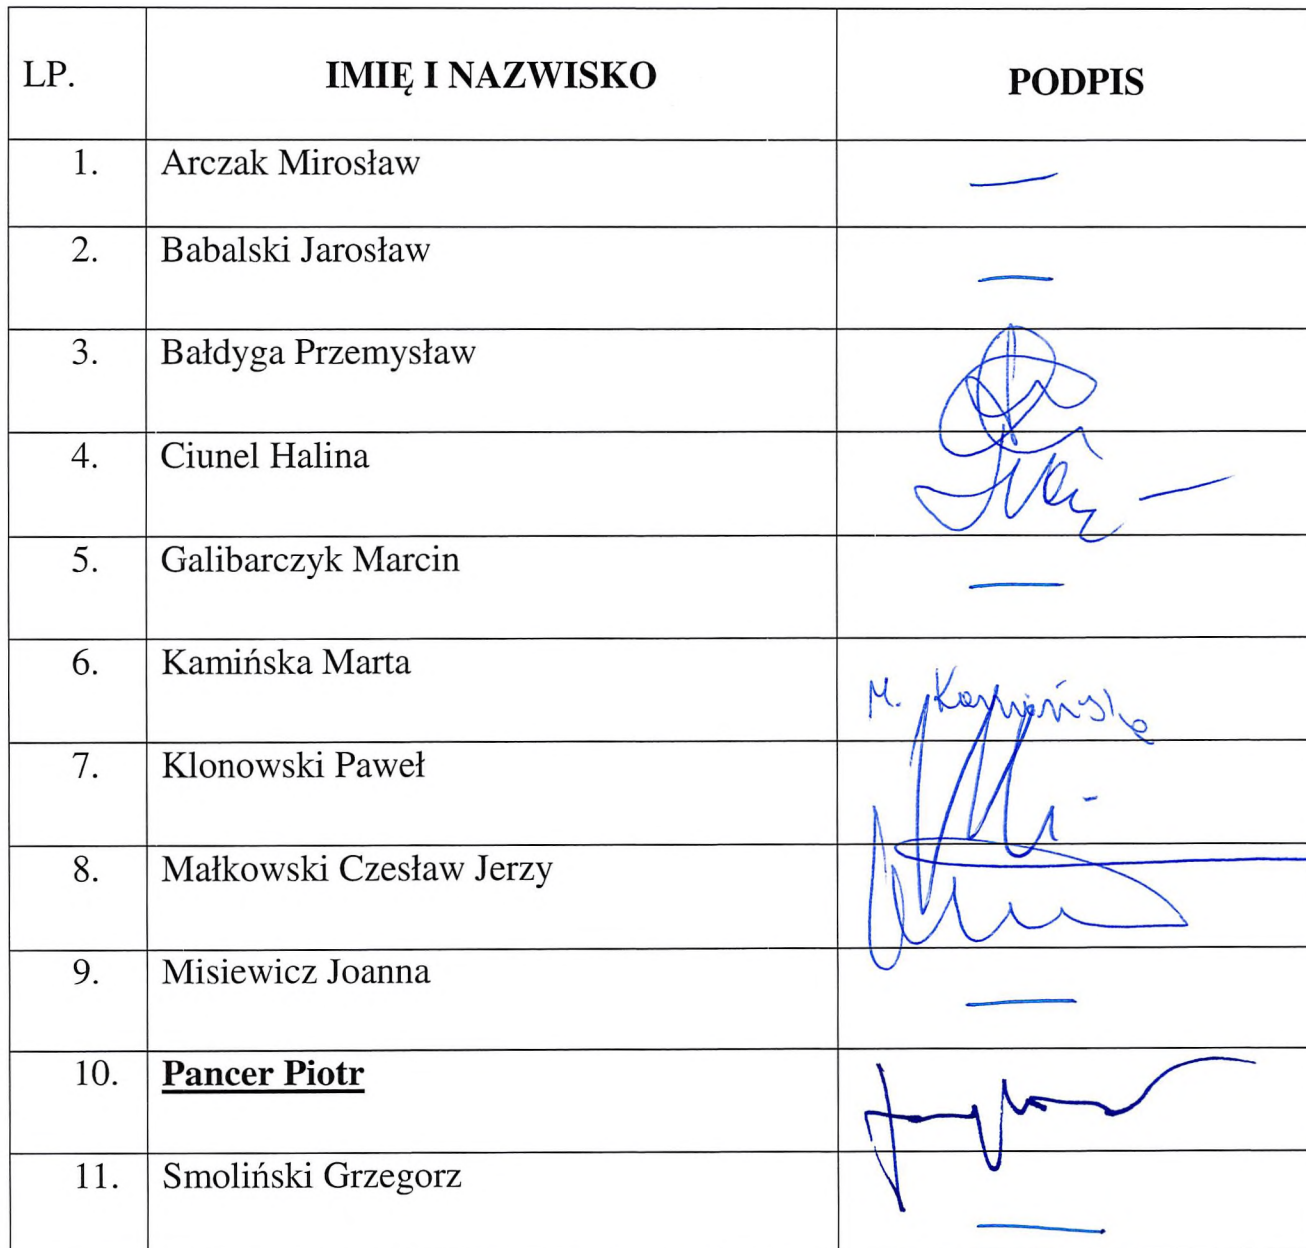 LP. IMIĘ I NAZWISKO PODPIS
1. Arczak Mirosław —
2. Babalski Jarosław —
3. Bałdyga Przemysław
4. Ciunel Halina
5. Galibarczyk Marcin —
6. Kamińska Marta M. Kamińska
7. Klonowski Paweł
8. Małkowski Czesław Jerzy
9. Misiewicz Joanna —
10. Pancer Piotr
11. Smoliński Grzegorz —